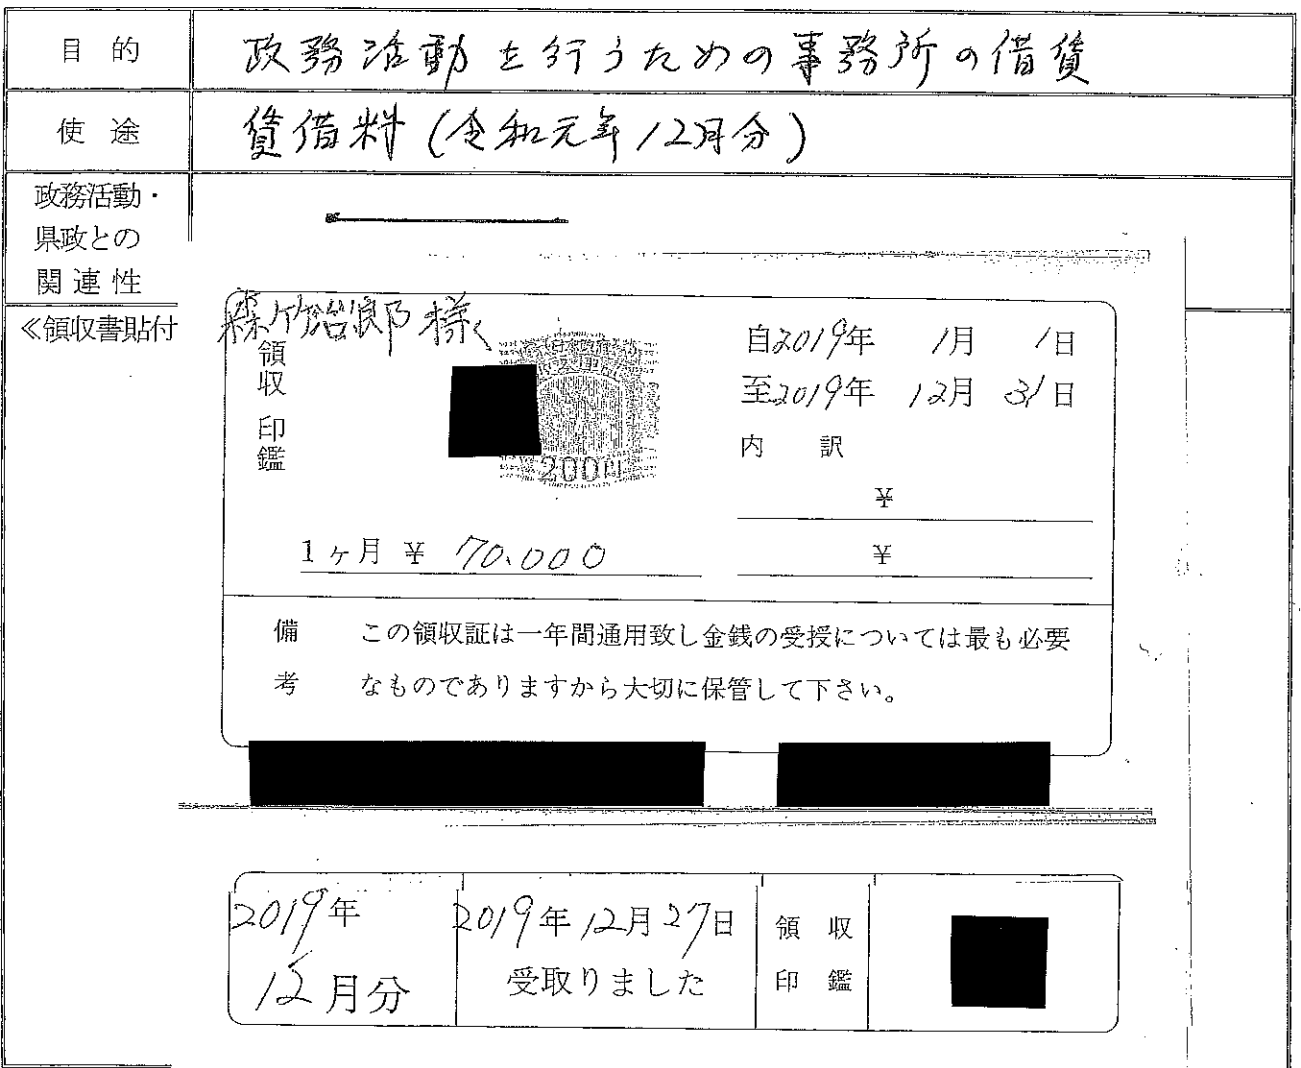 目的 政務活動を行うための事務所の借賃
使途 賃借料(令和元年12月分)
政務活動・
県政との
関連性
≪領収書貼付
森竹治郎様
領収印鑑
200円
自2019年 1月 1日
至2019年 12月 31日
内訳
¥
1ヶ月 ¥ 70.000
¥
備考
この領収証は一年間通用致し金銭の受授については最も必要
なものでありますから大切に保管して下さい。
2019年
12月分
2019年12月27日
受取りました
領収
印鑑